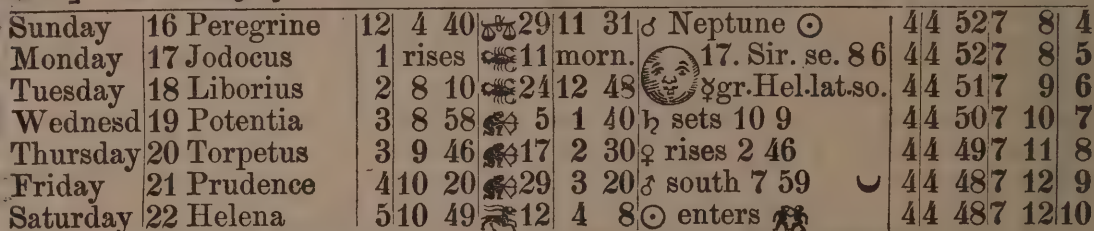 Sunday 16 Peregrine 12 4 40 ♎29 11 31 ☌ Neptune ☉ 4 4 52 7 8 4
Monday 17 Jodocus 1 rises ♏11 morn. 17. Sir. se. 8 6 4 4 52 7 8 5
Tuesday 18 Liborius 2 8 10 ♏24 12 48 ☿gr.Hel.lat.so. 4 4 51 7 9 6
Wednesd 19 Potentia 3 8 58 ♐ 5 1 40 ♄ sets 10 9 4 4 50 7 10 7
Thursday 20 Torpetus 3 9 46 ♐17 2 30 ♀ rises 2 46 4 4 49 7 11 8
Friday 21 Prudence 4 10 20 ♐29 3 20 ♂ south 7 59 4 4 48 7 12 9
Saturday 22 Helena 5 10 49 ♑12 4 8 ☉ enters ♊ 4 4 48 7 12 10